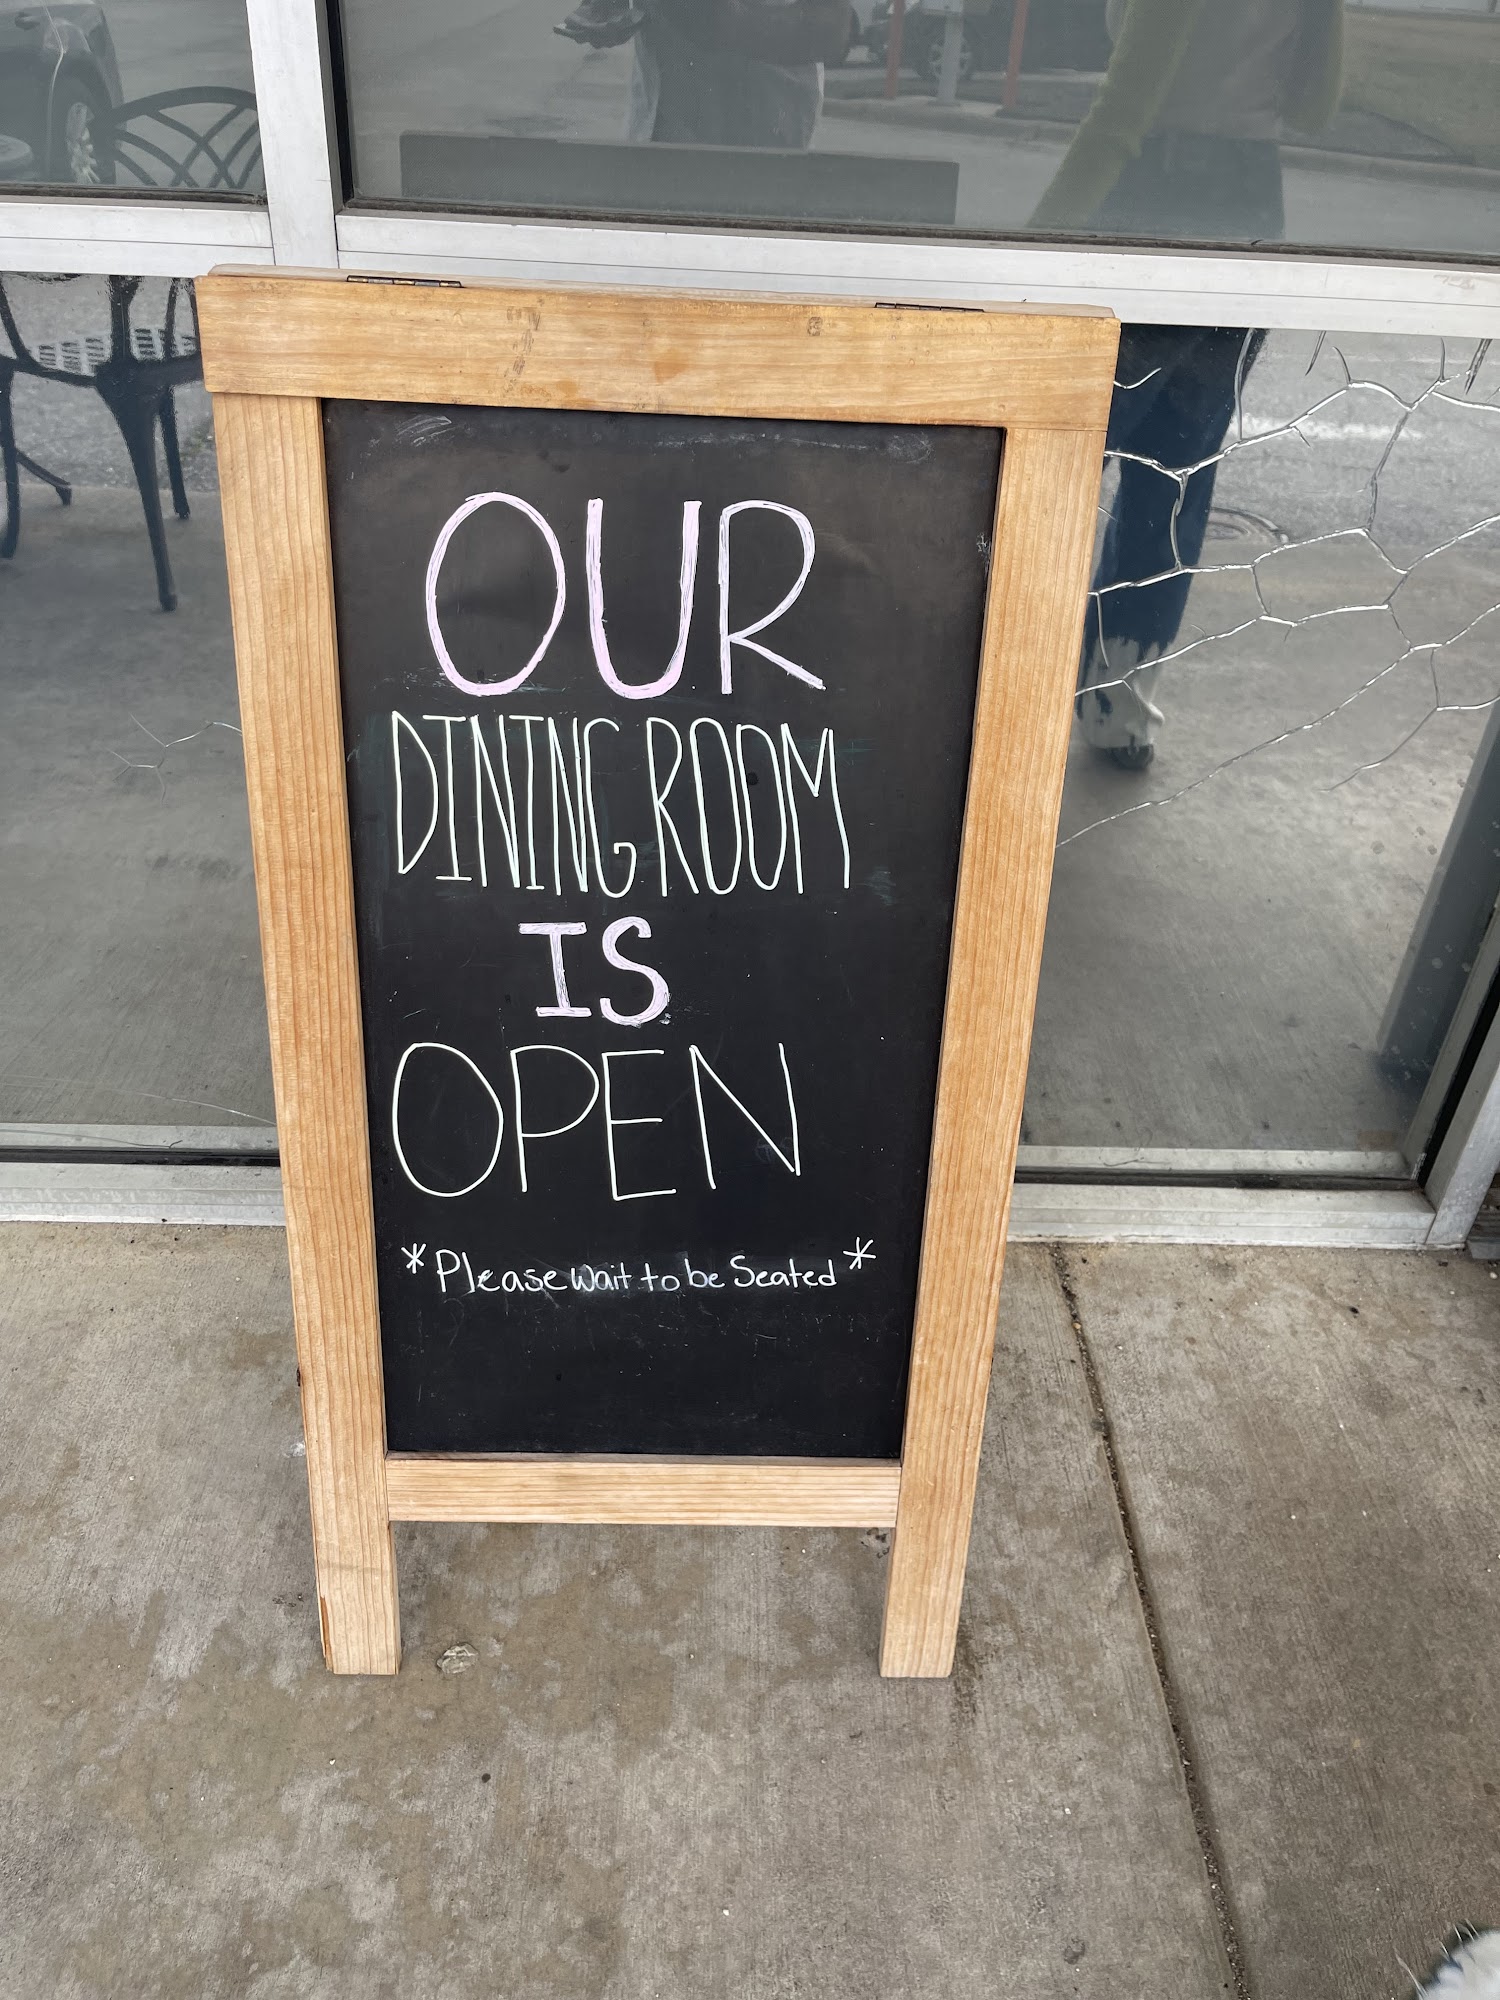 OUR
DINING ROOM
IS
OPEN
*Please wait to be Seated*